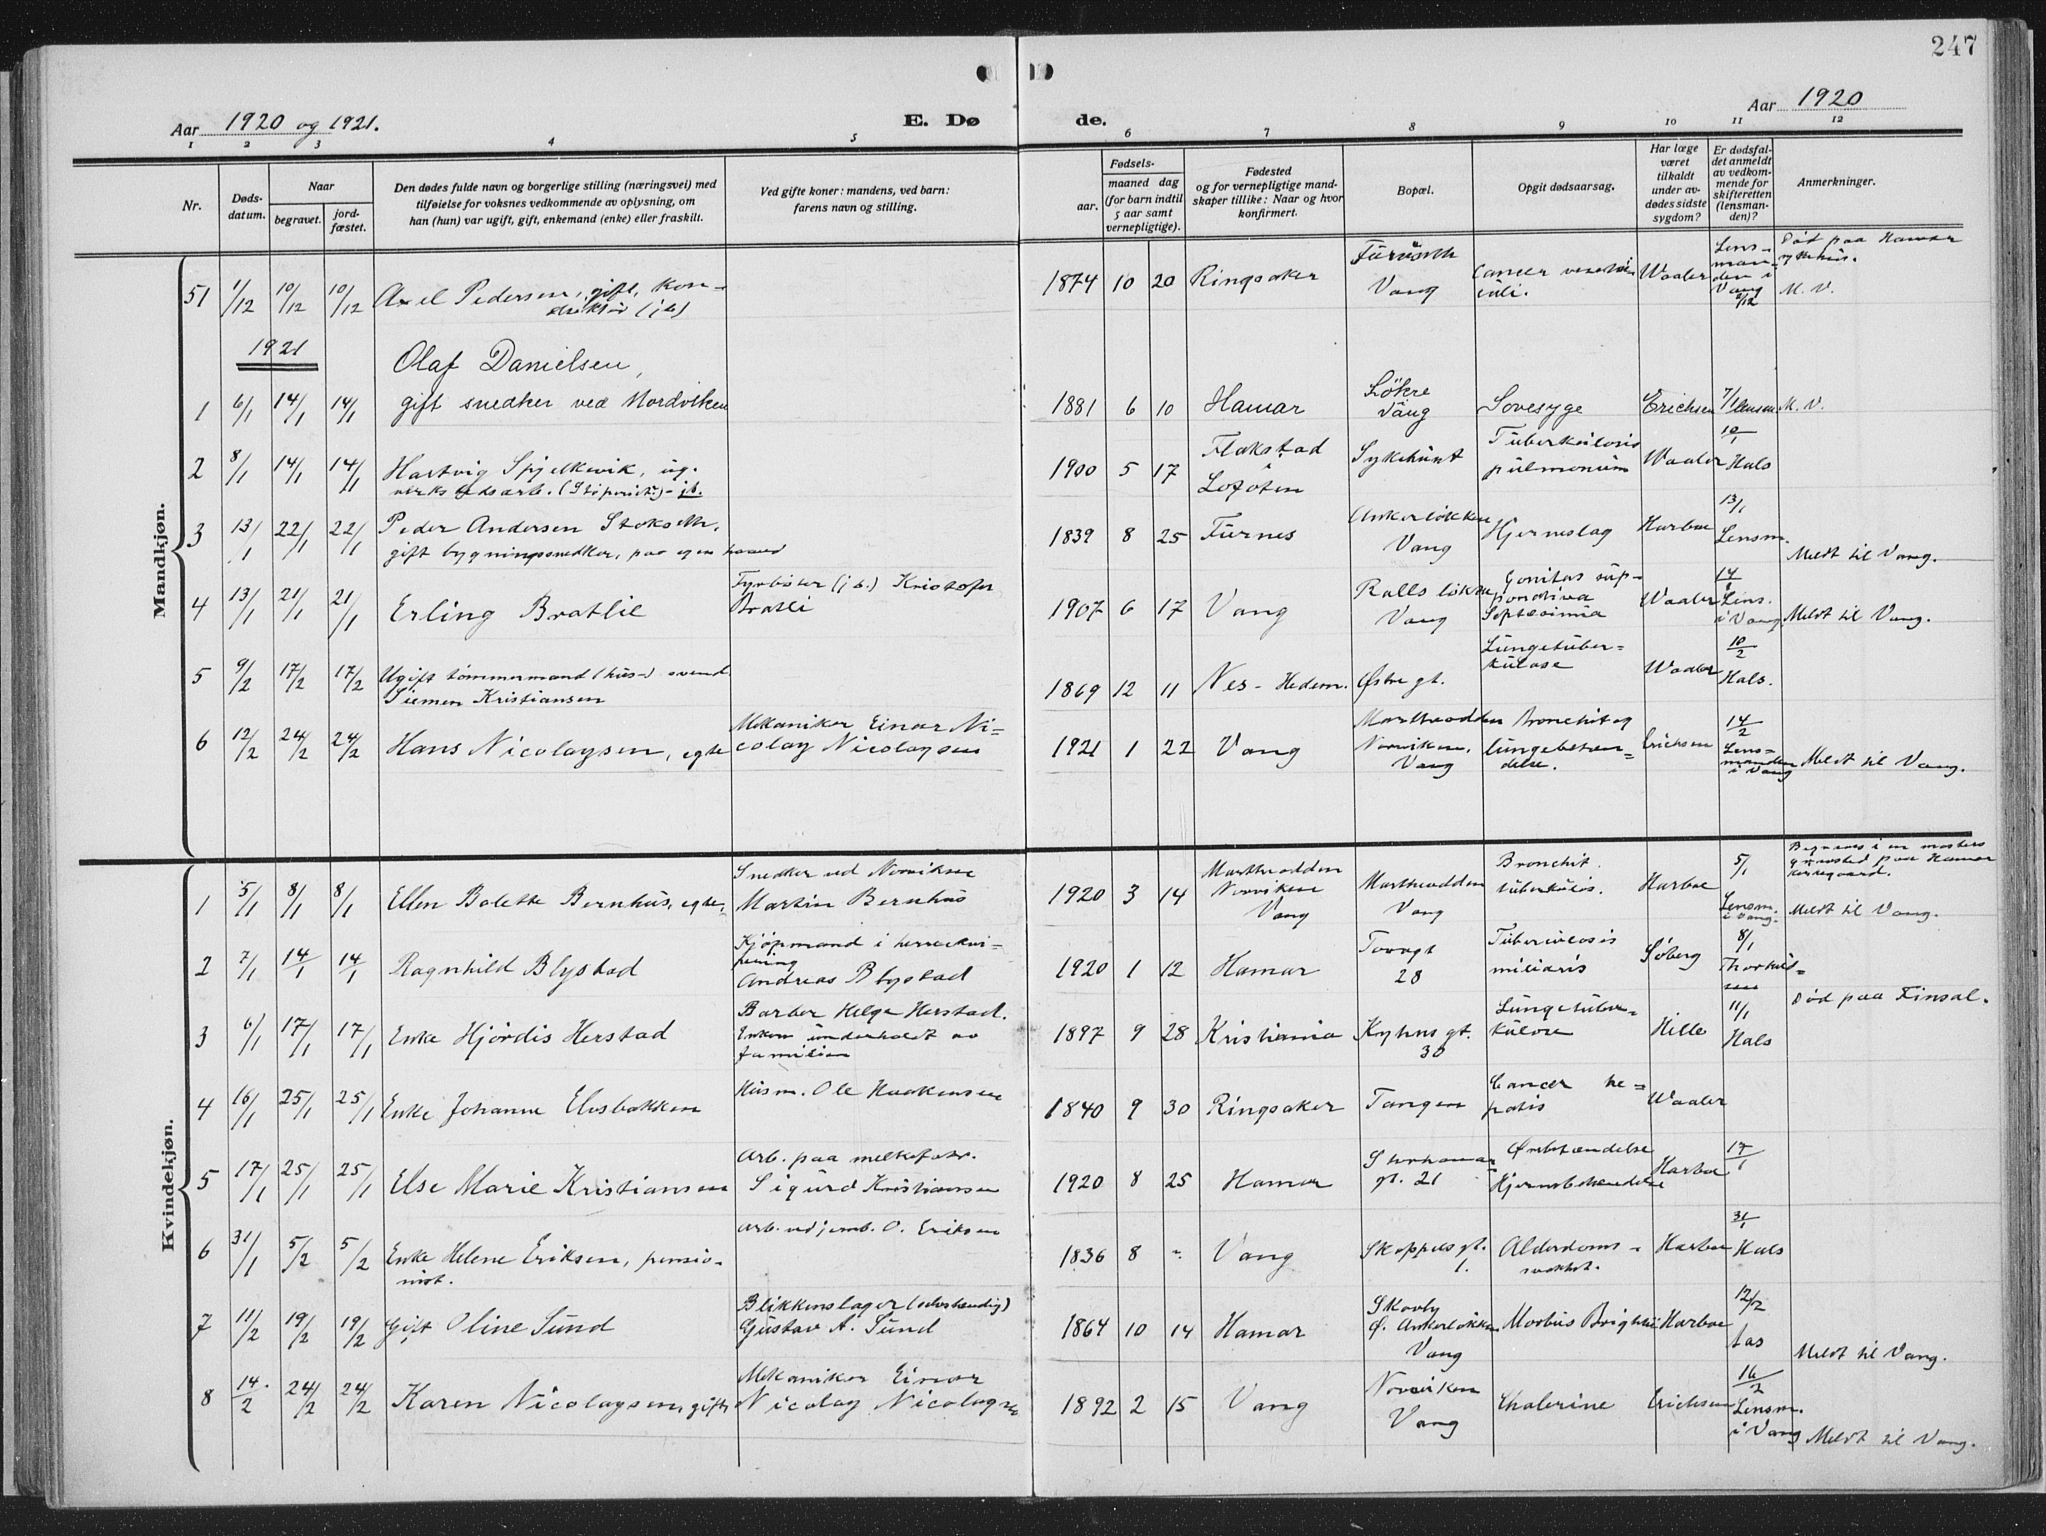 247
Aar 1920 og 1921.
E. Dø
de.
Aar 1920
1 2 3 4 5 6 7 8 9 10 11 12
Nr.
Døds-
datum.
Naar
begravet.
jord-
fæstet.
Den dødes fulde navn og borgerlige stilling (næringsvei) med
tilføielse for voksnes vedkommende av oplysning, om
han (hun) var ugift, gift, enkemand (enke) eller fraskilt.
Ved gifte koner: mandens, ved barn:
farens navn og stilling.
Fødsels-
aar.
maaned dag
(for barn indtil
5 aar samt
vernepligtige).
Fødested
og for vernepligtige mand-
skaper tillike: Naar og hvor
konfirmert.
Bopæl.
Opgit dødsaarsag.
Har læge
været
tilkaldt
under av-
dødes sidste
sygdom?
Er dødsfal-
det anmeldt
av vedkom-
mende for
skifteretten
(lensman-
den)?
Anmerkninger.
Mandkjøn.
51 1/12 10/12 10/12 Axel Pedersen, gift, kon-
duktør (jb)
1874 10 20 Ringsaker
Furuseth
Vang
Cancer
Waaler
Lens-
man-
den i
Vang
Død paa Hamar
sykehus.
M. V.
1921
1 6/1 14/1 14/1 Olaf Danielsen,
gift snedker ved Nordviken
1881 6 10 Hamar
Løkre
Vang
Sovesyge Erichsen 7/1 lensm M. V.
2 8/1 14/1 14/1 Hartvig Spjelkevik, ug.
verkstedsarb. jb.
1900 5 17 Flakstad
Lofoten
Sykehuset
Tuberkulosis
pulmonum
Waaler 10/1
Hals
3 13/1 22/1 22/1 Peder Andersen Stokseth,
gift bygningssnedker, paa egen haand
1839 8 25 Furnes
Ankerløkken
Vang
Hjerneslag Harboe 13/1
Lensm.
Meldt til Vang.
4 13/1 21/1 21/1 Erling Bratlie
Fyrbøter (jb.) Kristofer
Bratli
1907 6 17 Vang
Ralls løkke
Vang
Gonitas sup-
Septicimia
Waaler 14/1
Lens.
i Vang
Meldt til Vang.
5 9/2 17/2 17/2 Ugift tømmermand (hus-) svend
Simen Kristiansen
1869 12 11 Nes - Hedem. Østre gt.
Lungetuber-
kulose
Waaler 10/2
Hals.
6 12/2 24/2 24/2 Hans Nicolaysen, egte
Mekaniker Einar Ni-
colay Nicolaysen
1921 1 22 Vang
Martheodden
Norviken,
Vang
Bronchit og
lungebetæn-
delse.
Erichsen 14/2
Lens-
manden
i Vang
Meldt til Vang.
Kvindekjøn.
1 5/1 8/1 8/1 Ellen Bolette Bernhus, egte,
Snedker ved Norviken
Martin Bernhus
1920 3 14 Martheodden
Norviken
Vang
Martheodden
Vang
Bronchit.
tuberkulos.
Harboe 5/1
Lensm.
i Vang.
Begraves i en mosters
gravsted paa Hamar
kirkegaard.
Meldt til Vang.
2 7/1 14/1 14/1 Ragnhild Blystad
Kjøpmand i herreekvi-
pering
Andreas Blystad
1920 1 12 Hamar
Torvgt
28
Tuberculosis
miliaris
Søberg 8/1
Thorkild-
sen
3 6/1 17/1 17/1 Enke Hjørdis Herstad
Barber Helge Herstad.
Enken underholdt av
familien
1897 9 28 Kristiania
Kyhns gt.
30
Lungetuber-
kulose
Hille 11/1
Hals
Død paa Finsal.
4 16/1 25/1 25/1 Enke Johanne Elvsbakken
Husm. Ole Haakensen
1840 9 30 Ringsaker Tangen
Cancer he-
patis
Waaler
5 17/1 25/1 25/1 Else Marie Kristiansen
Arb. paa melkefabr.
Sigurd Kristiansen
1920 8 25 Hamar
Storhamar
gt. 21
Ørebetændelse
Hjernebetændelse
Harboe 17/1
6 31/1 5/2 5/2 Enke Helene Eriksen, pensio-
nist.
Arb. ved jernb. O. Eriksen
1836 8 - Vang
Skappels gt.
1.
Alderdoms-
svakhet.
Harboe 31/1
Hals
7 11/2 19/2 19/2 Gift Oline Sund
Blikkenslager (selvstændig)
Gustav A. Sund
1864 10 14 Hamar
Skovly
Ø. Ankerløkken
Vang
Morbus Brightii Harboe 12/2
Aas
Meldt til Vang.
8 14/2 24/2 24/2 Karen Nicolaysen, gift
Mekaniker Einar
Nicolay Nicolaysen
1892 2 15 Vang
Norviken
Vang
Cholerine Erichsen 16/2
Lensm.
i Vang
Meldt til Vang.